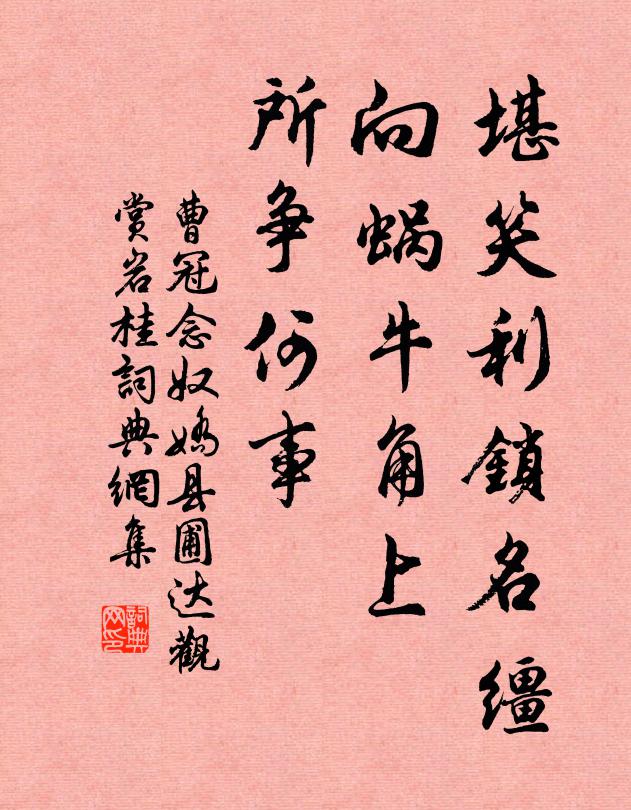 堪笑利鎖名缰
向蜗牛角上
所争何事
曹冠念奴嬌县圃达觀
赏岩桂詞典網集
詞典
网印